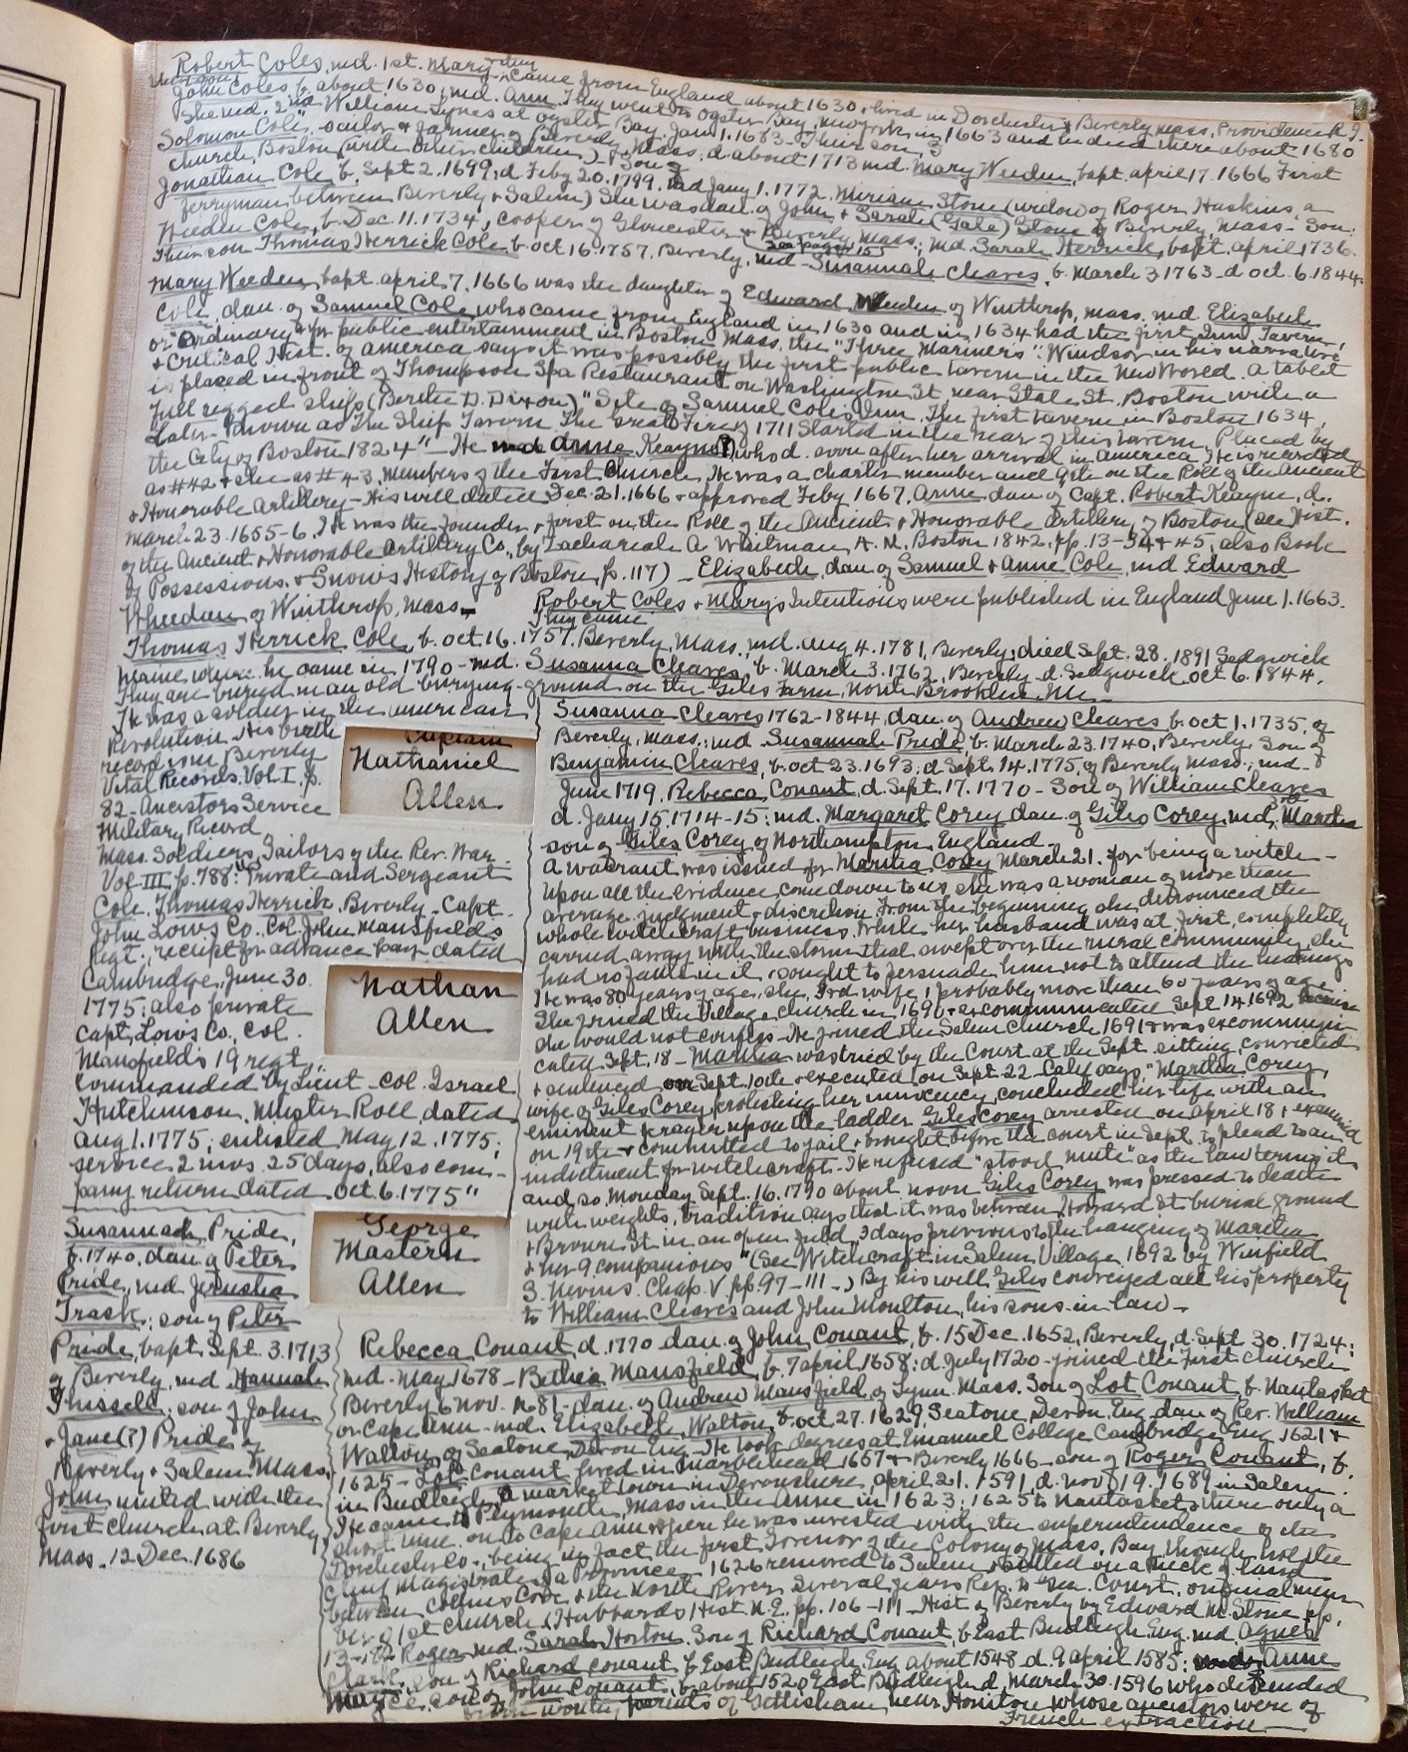 Robert Coles, md. 1st. Mary they came from England about 1630, lived in Dorchester & Beverly Mass, Providence R.I.
John Coles, b. about 1630, md. Ann. They went to Oyster Bay, New York in 1663 and he died there about 1680
She md. 2nd William Lynes at Oyster Bay, Jan 1. 1683 - Their son,
Solomon Cole, sailor & farmer of Beverly Mass. d. about 1713 md. Mary Weeden, bapt. April 17. 1666 First
Church, Boston (with other children) Son
Jonathan Cole, b. Sept 2. 1699; d Feby 20. 1799. md Jany 1. 1772. Miriam Stone (widow of Roger Haskins, a
ferryman between Beverly & Salem) She was dau. of John & Sarah (Gale) Stone of Beverly, Mass - Son:
Weeden Cole, b. Dec. 11. 1734, cooper of Gloucester & Beverly Mass.; md. Sarah Herrick, bapt. april 1736.
Their son Thomas Herrick Cole, b. Oct 16. 1757, Beverly, md - Susannah Cleaves, b. March 3 1763 - d Oct. 6. 1844.
See page 15
Mary Weeden, bapt. april 7, 1666 was the daughter of Edward Weeden of Winthrop, Mass. md Elizabeth
Cole, dau. of Samuel Cole, who came from England in 1630 and in 1634 had the first Inn, Tavern,
or "Ordinary" for public entertainment in Boston Mass. the "Three Mariners": Windsor in his narrative
& Critical Hist. of America says it was possibly the first public tavern in the New World. A tablet
is placed in front of Thompson Spa Restaurant on Washington St near State St. Boston with a
full rigged ship, (Bertha D. Dixon) "Site of Samuel Coles Inn. The first tavern in Boston 1634,
Later known as The Ship Tavern. The Great Fire of 1711 started in the rear of this tavern, Placed by
the City of Boston 1824" - He md Anne Keayne(?) who d. soon after her arrival in America, He is recorded
as #42 & she as #43, members of the First Church. He was a charter member and on the Roll of the Ancient
& Honorable Artillery - His will dated Dec. 21. 1666 & approved Feby 1667. Anne, dau of Capt. Robert Keayne, d.
March 23. 1655-6. He was the founder & first on the Roll of the Ancient & Honorable Artillery, of Boston (see Hist.
of the Ancient & Honorable Artillery Co., by Zachariah A. Whitman, A.M. Boston 1842. pp. 13-34 & 45, also Book
of Possessions & Snow's History of Boston, p. 117) - Elizabeth, dau of Samuel & Anne Cole, md Edward
Wheedan of Winthrop, Mass - Robert Coles & Mary's Intentions were published in England June 1. 1663.
They came
Thomas Herrick Cole, b. Oct 16. 1757. Beverly, Mass., md. Aug 4. 1781, Beverly; died Sept. 28. 1891 Sedgwick
Maine, where he came in 1790 - md. Susanna Cleaves, b. March 3. 1762, Beverly - d. Sedgwick Oct 6. 1844.
They are buried in an old burying-ground on the Giles Farm, North Brooklin, Me
He was a soldier in the American
Revolution. His birth
record in Beverly
Vital Records, Vol. I, p.
82 - Ancestors Service
Military Record
Mass. Soldiers, Sailors of the Rev. War -
Vol. III, p. 788: "Private and Sergeant
Cole, Thomas Herrick, Beverly - Capt.
John Lows Co., Col. John Mansfields
Regt., receipt for advance pay dated
Cambridge, June 30.
1775; also private
Capt. Lows Co., Col.
Mansfields 19 regt.,
commanded by Lieut - Col. Israel
Hutchinson, Muster Roll dated
Aug 1. 1775; enlisted May 12. 1775;
service 2 mos. 25 days, also com-
pany return dated Oct. 6. 1775"
Captain
Nathaniel
Allen
Nathan
Allen
George
Mastern
Allen
Susannah Pride,
b. 1740, dau. of Peter
Pride, md Jerusha
Trask; son of Peter
Pride, bapt. Sept. 3. 1713
of Beverly, md Hannah
Thissell; son of John
& Jane(?) Pride of
Beverly & Salem Mass.
John united with the
First Church at Beverly,
Mass - 12 Dec. 1686
Susanna Cleaves 1762-1844, dau. of Andrew Cleaves b. Oct 1. 1735, of
Beverly, Mass.; md Susannah Pride, b. March 23. 1740, Beverly. Son of
Benjamin Cleaves, b. Oct 23. 1693; d. Sept. 14. 1775, of Beverly Mass; md -
June 1719, Rebecca Conant, d. Sept. 17. 1770 - Son of William Cleaves
d. Jany 15, 1714-15; md. Margaret Corey dau. of Giles Corey, md, Martha
son of Giles Corey of Northampton, England -
A warrant was issued for Martha Corey March 21. for being a witch -
Upon all the evidence, come down to us, she was a woman of more than
average judgment & discretion. From the beginning, she denounced the
whole witchcraft business. While her husband was at first, completely
carried away with the storm that swept over the rural community, she
had no faith in it, & sought to persuade him not to attend the hearings
He was 80 years of age, she, 3rd wife, probably more than 60 years of age.
She joined the village church in 1690 & excommunicated Sept 14 1692 because
she would not confess - He joined the Salem Church 1691 & was excommuni-
cated Sept. 18 - Martha was tried by the Court at the Sept. sitting, convicted
& sentenced on Sept. 10th & executed on Sept. 22 - Calef says "Martha Corey,
wife of Giles Corey, protesting her innocency, concluded her life with an
eminent prayer upon the ladder. Giles Corey arrested on April 18 & examined
on 19th & committed to jail & brought before the court in Sept. to plead to an
indictment for witchcraft - He refused "stood mute" as the law terms it
and so, Monday Sept. 16. 1790 about noon Giles Corey was pressed to death
with weights, tradition says that it was between Howard St burial ground
& Brown St in an open field, 3 days previous to the hanging of Martha
& her 9 companions" (See Witchcraft in Salem Village, 1692 by Winfield
S. Nevins. Chap. V pp. 97-111 -) By his will, Giles conveyed all his property
to William Cleaves and John Moulton, his sons-in-law -
Rebecca Conant, d. 1770 dau. of John Conant, b. 15 Dec. 1652, Beverly, d. Sept. 30. 1724;
md - May 1678 - Bethia Mansfield, b. 7 April 1658: d. July 1720 - joined the First Church
Beverly 6 Nov. 1681 - dau. of Andrew Mansfield of Lynn, Mass. Son of Lot Conant, b. Nantasket
or Cape Ann - md. Elizabeth Walton, b. Oct 27. 1629, Seatone, Devon, Eng. dau of Rev. William
Walton, of Seatone, Devon Eng - He took degrees at Emanuel College Cambridge Eng 1621 &
1625 - Lot Conant lived in Marblehead 1657 & Beverly 1666 - son of Roger Conant, b.
in Budleigh, a market town in Devonshire, April 21. 1591, d. Nov 19. 1689, in Salem.
He came to Plymouth, Mass in the Anne in 1623; 1625 to Nantasket where only a
short time, on to Cape Ann where he was invested with the superintendence of the
Dorchester Co., being in fact the first Governor of the Colony of Mass. Bay though not the
Chief Magistrate of a Province - 1626 removed to Salem & settled on a neck of land
between Collins Cove & the North River. Several years Rep. to Gen. Court, original mem-
ber of 1st Church (Hubbards Hist N.E. pp. 106-111 - Hist of Beverly by Edward M. Stone pp.
13-18 - Roger md. Sarah Horton. Son of Richard Conant, b. East Budleigh, Eng. md Agnes
Clark, son of Richard Conant b. East Budleigh, Eng about 1548 d. 9 April 1585: md. Anne
Mayce, son of John Conant, b. about 1520, East Budleigh, d. March 30. 1596 who descended
from worthy parents of Gittisham, near Honiton, whose ancestors were of
French extraction -